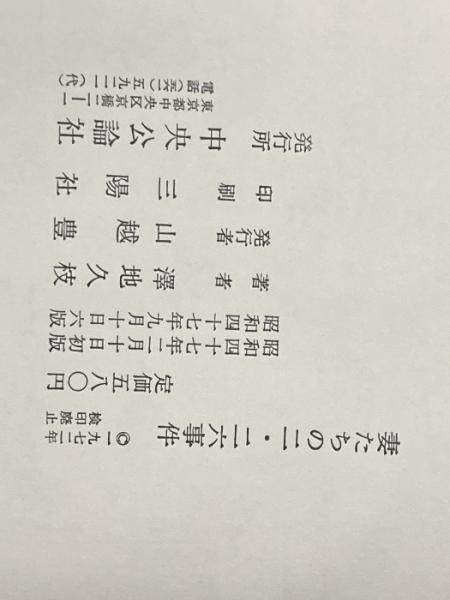 妻たちの二・二六事件
◎一九七二年
検印廃止
定価五八〇円
昭和四十七年二月十日初版
昭和四十七年九月十日六版
著者 澤地久枝
発行者 山越豊
印刷 三陽社
発行所 中央公論社
東京都中央区京橋二ー一
電話(五六一)五九二一(代)